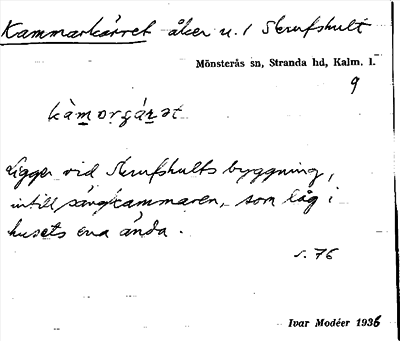 Kammarkärret åker u. / Skrufshult
Mönsterås sn, Stranda hd, Kalm. l.
9
kàmorʒárət
Ligger vid Skrufshults byggning,
intill sängkammaren, som låg i
husets ena ända.
s. 76
Ivar Modéer 1936